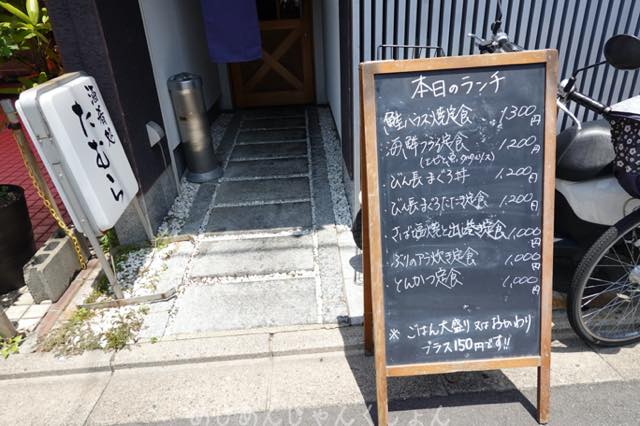 酒肴処
たむら
本日のランチ
・鮭ハラス焼定食 1300円
・海鮮フライ定食 1,200円
(エビと魚、タルタルソース)
・びん長まぐろ丼 1,200円
・びん長まぐろたたき定食 1,200円
・さば塩焼と出し巻き定食 1,000円
・ぶりのアラ炊き定食 1,000円
・とんかつ定食 1,000円
※ごはん大盛り又はおかわり
プラス150円です!!
めしめんじゃんくしょん